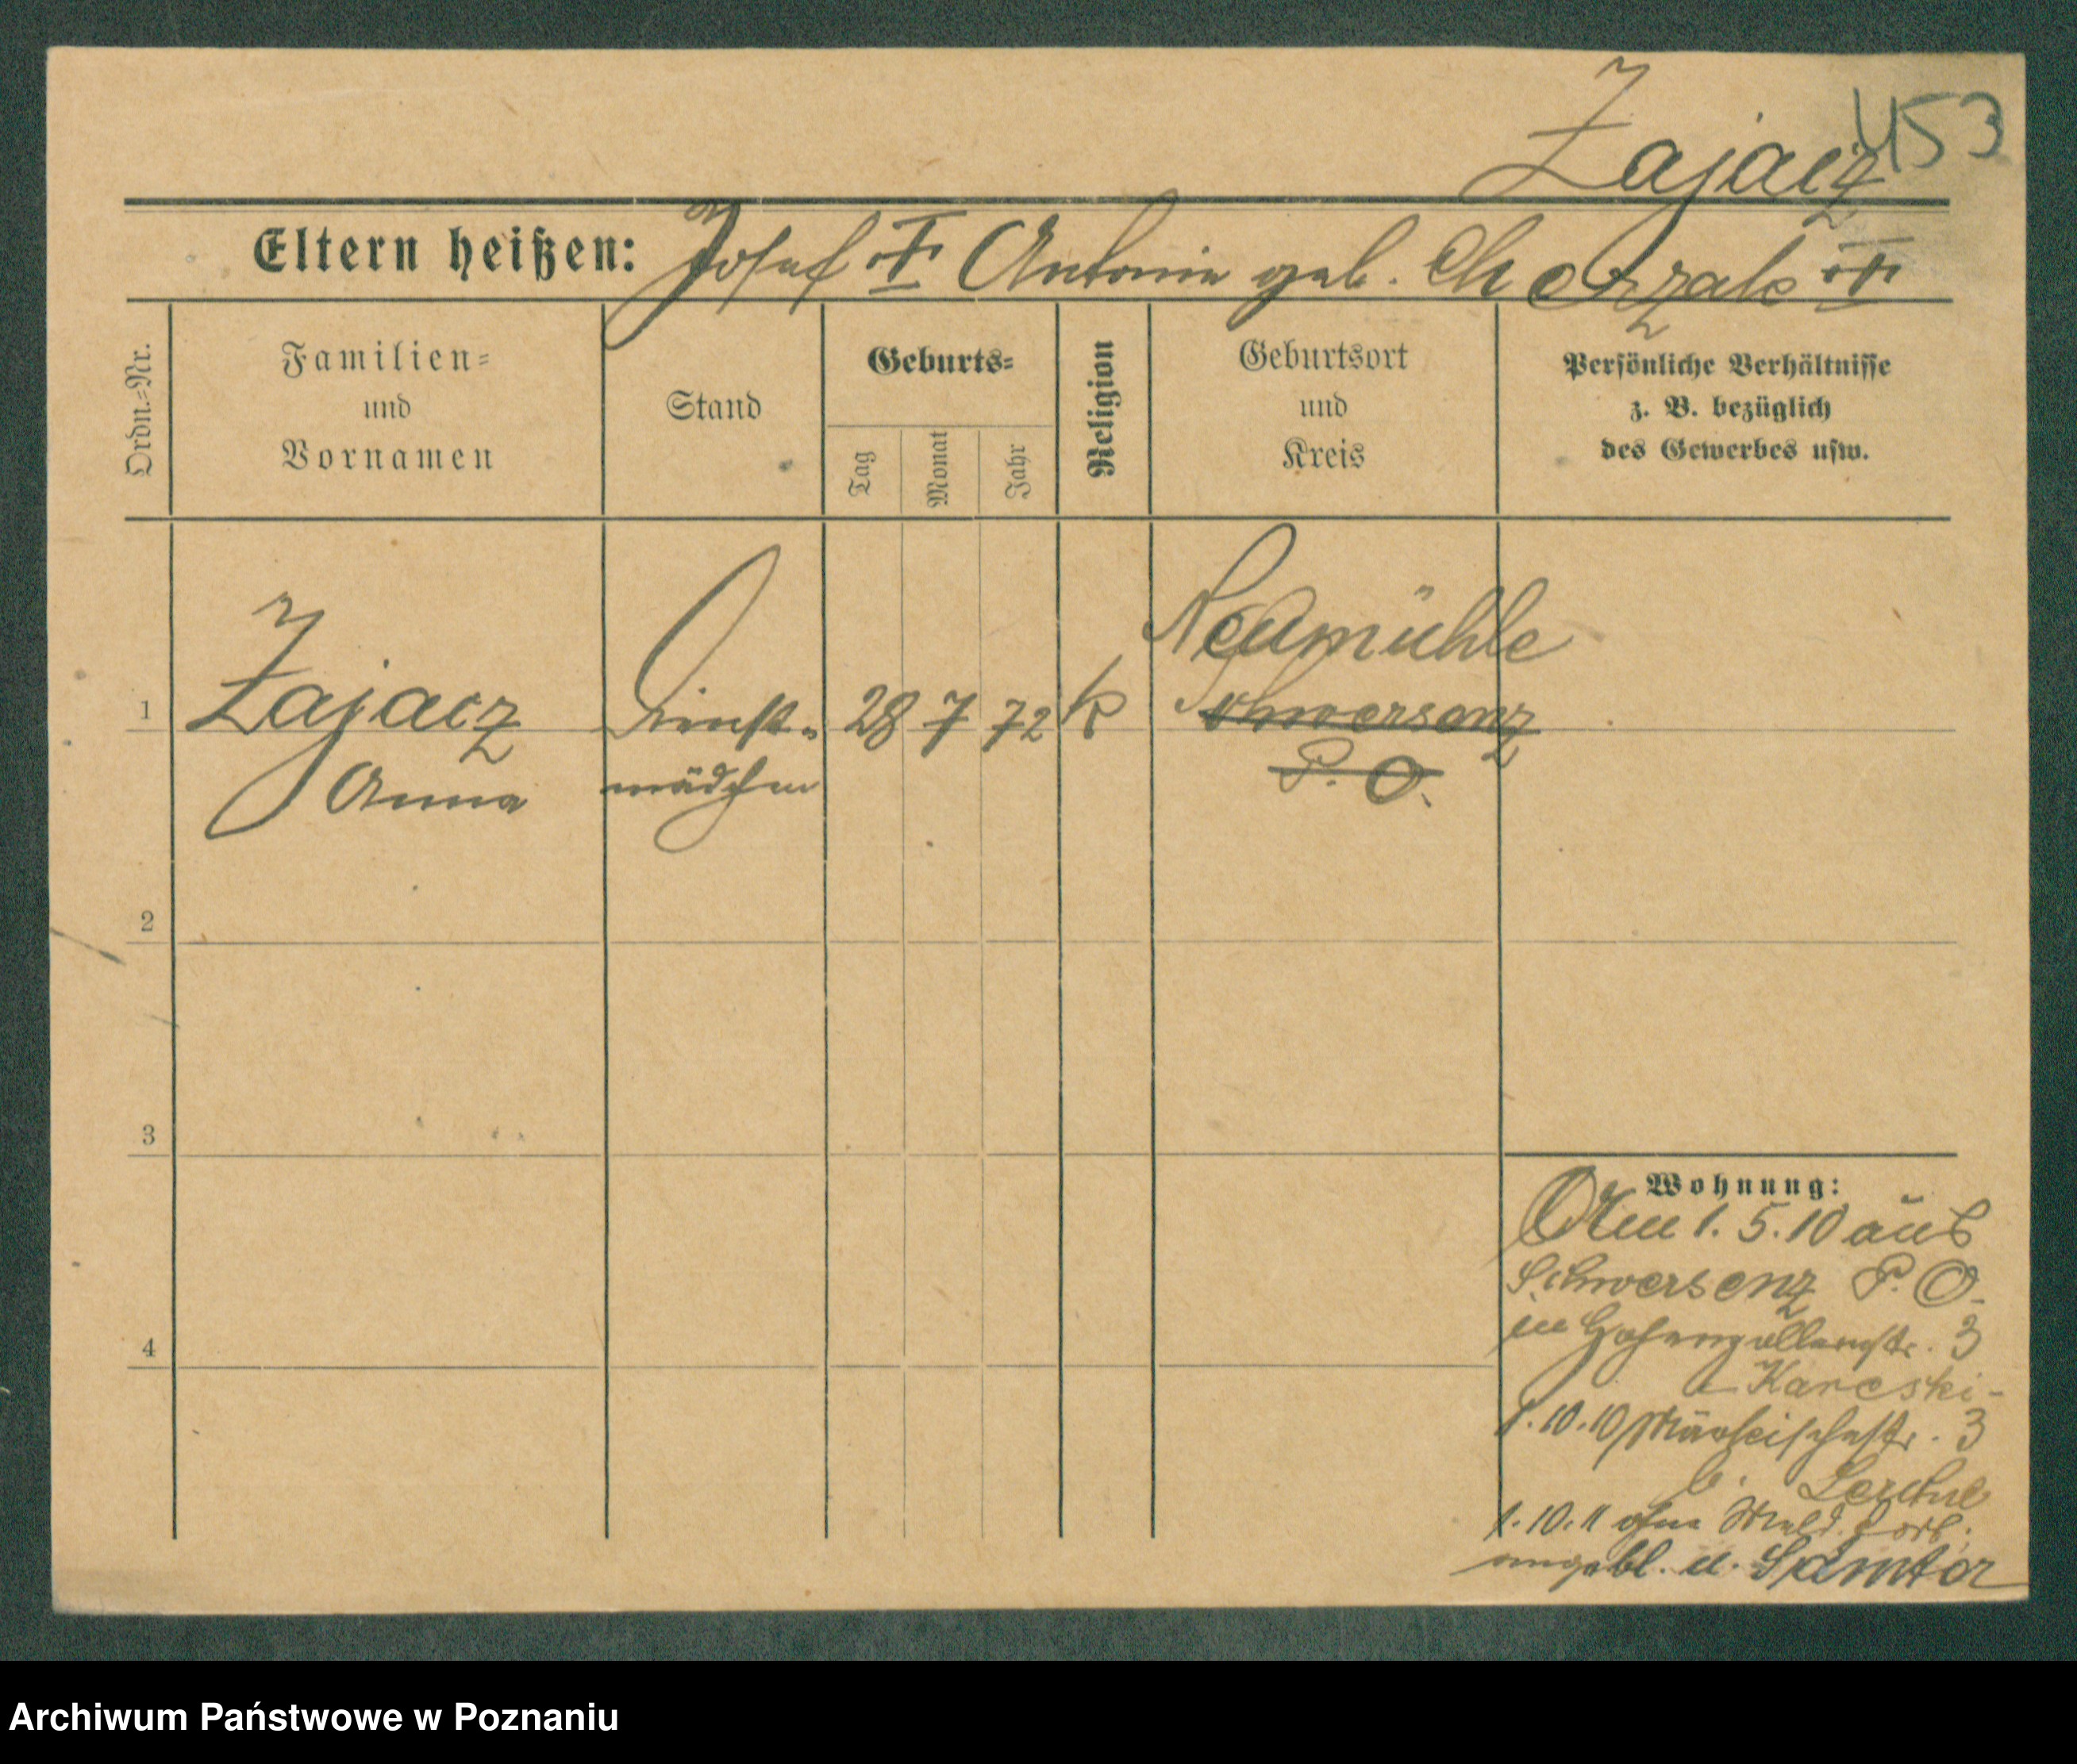 453
Zajacz
Eltern heißen: Josef † Antonie geb. †
Ordn.=Nr.
Familien=
und
Vornamen
Stand
Geburts=
Tag
Monat
Jahr
Religion
Geburtsort
und
Kreis
Persönliche Verhältnisse
z. B. bezüglich
des Gewerbes usw.
Neumühle
1 Zajacz Dienst= 28 7 72 k Schwersenz
Anna mädchen P. O.
2
3
4
Wohnung:
1. 5. 10 aus
Schwersenz P. O.
in Hohenzollernstr. 3
Karcski -
1. 10. 10 Märkischestr. 3
b.
1. 10. 11 ohne Meld.
angebl. n. Samter
Archiwum Państwowe w Poznaniu